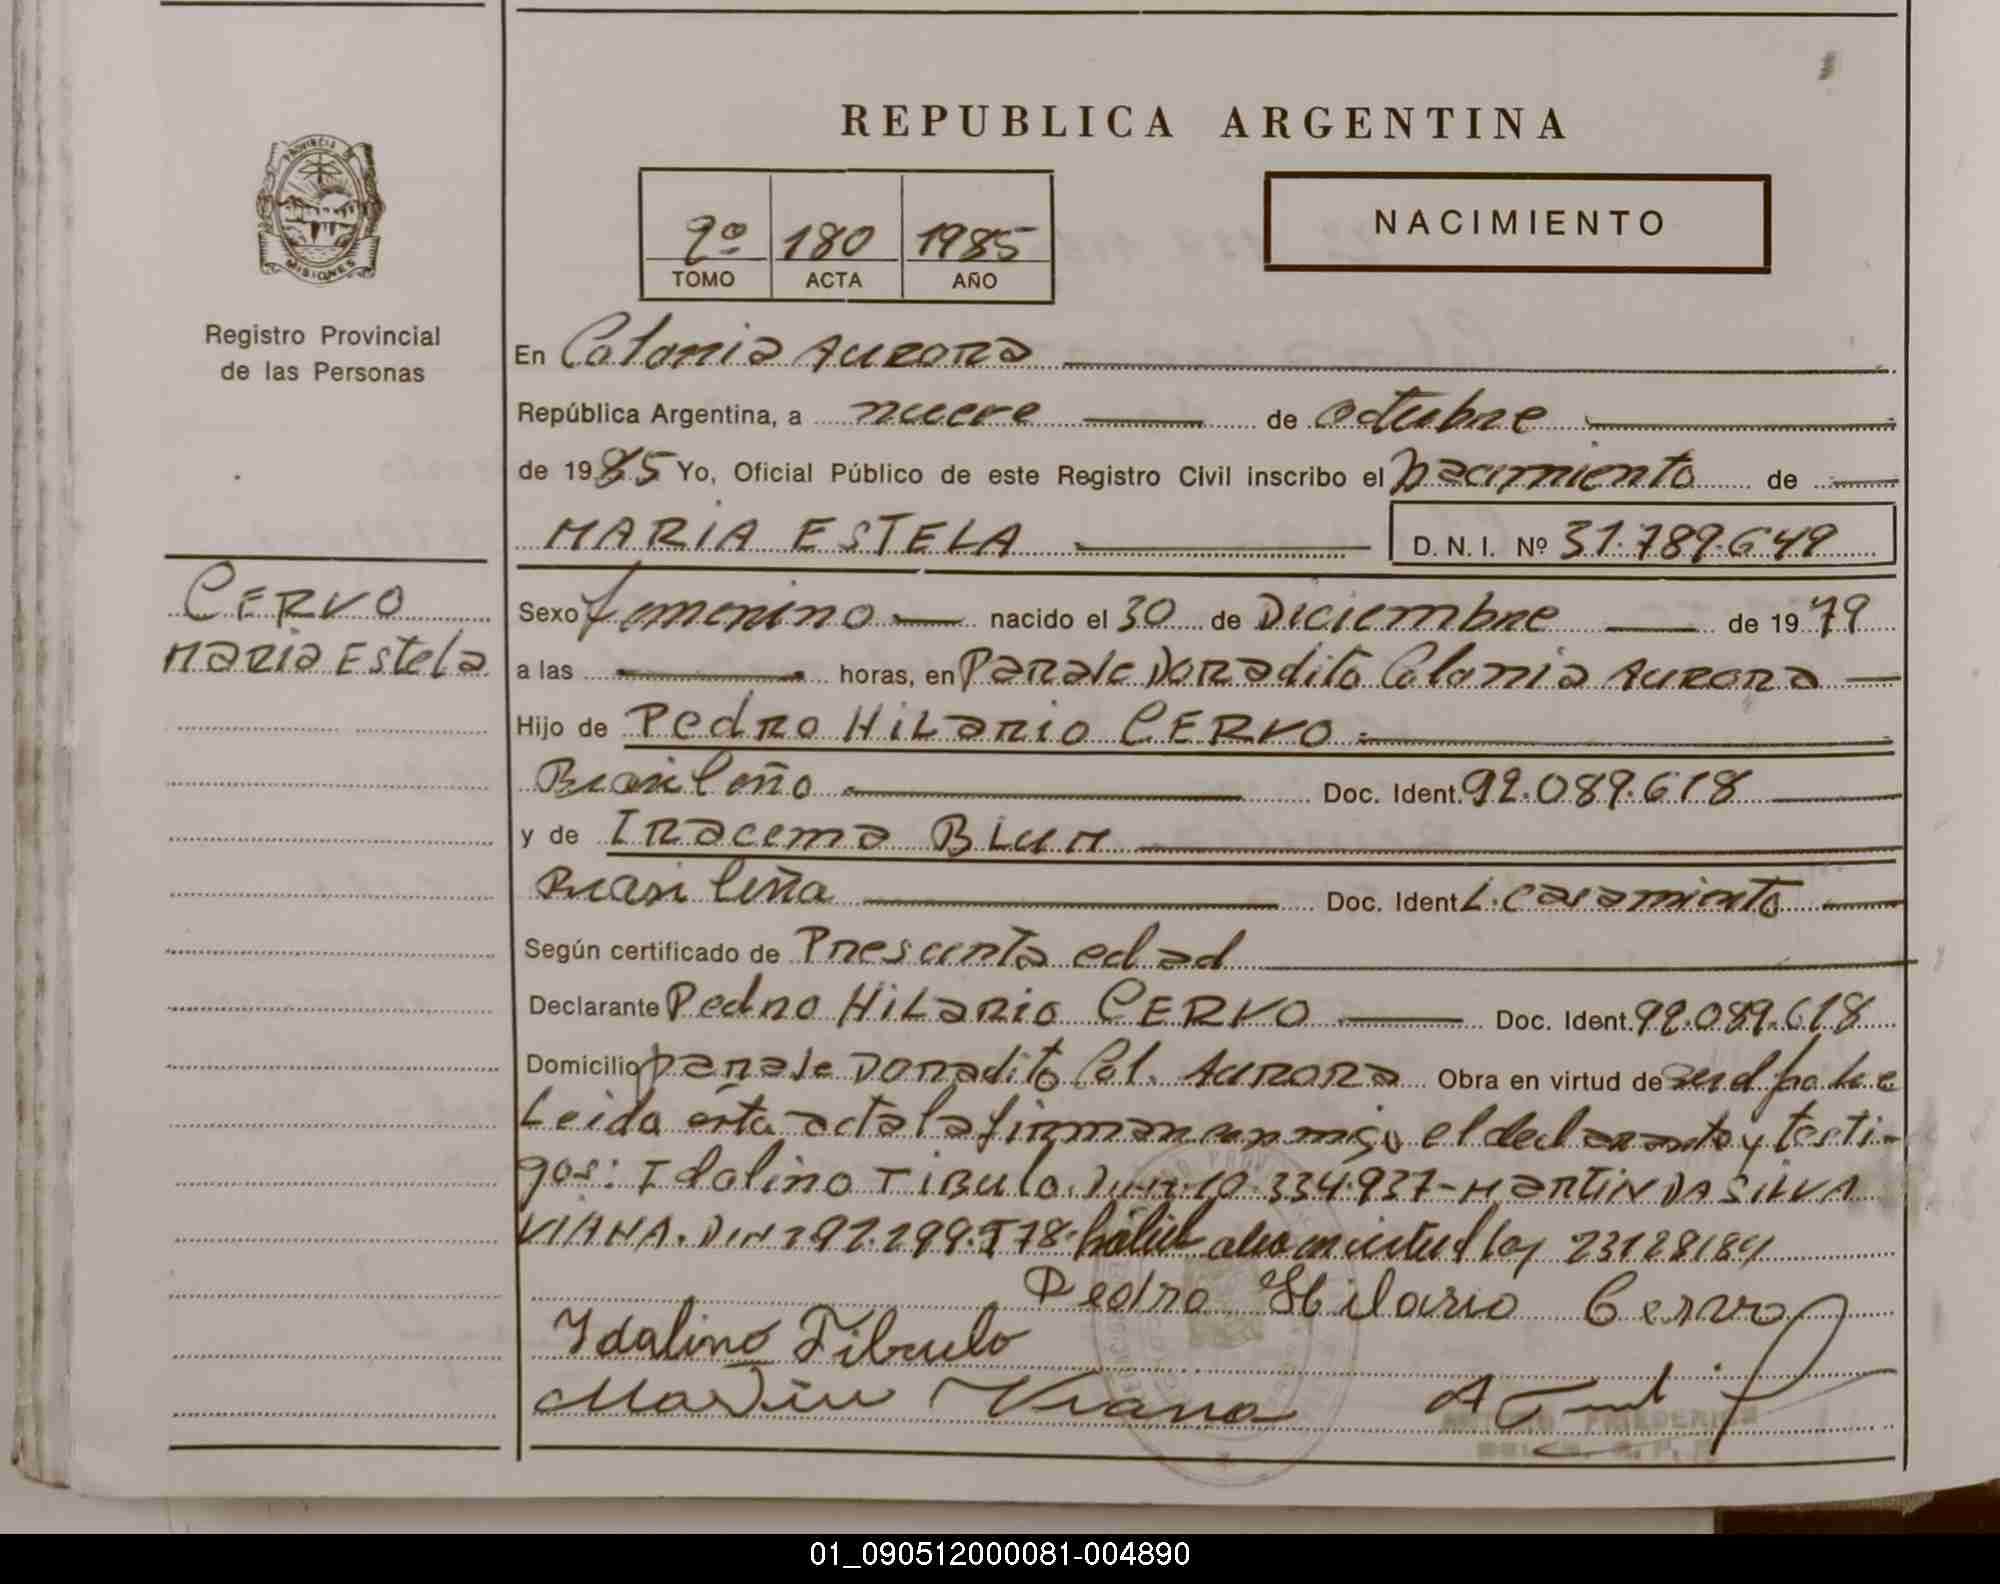 REPUBLICA ARGENTINA
PROVINCIA DE
MISIONES
Registro Provincial
de las Personas
2º 180 1985
TOMO ACTA AÑO
NACIMIENTO
En Colonia Aurora
República Argentina, a nueve de octubre
de 1985 Yo, Oficial Público de este Registro Civil inscribo el Nacimiento de
MARIA ESTELA D. N. I. Nº 31.789.649
CERVO
Maria Estela
Sexo femenino nacido el 30 de Diciembre de 1979
a las horas, en Paraje Doradito Colonia Aurora
Hijo de Pedro Hilario CERVO
Brasileño Doc. Ident. 92.089.618
y de Iracema BLUM
Brasileña Doc. Ident L. casamiento
Según certificado de Presunta edad
Declarante Pedro Hilario CERVO Doc. Ident. 92.089.618
Domicilio paraje Doradito Col. Aurora Obra en virtud de ser el padre
Leida esta acta la firman conmigo el declarante y testi-
gos: Idalino TIBULO. 10.334.937- MARTIN DA SILVA
VIANA. 92.299.578. en virtud ley 23128/84
Pedro Hilario Cervo
Idalino Tibulo
Martin Viana
01_090512000081-004890